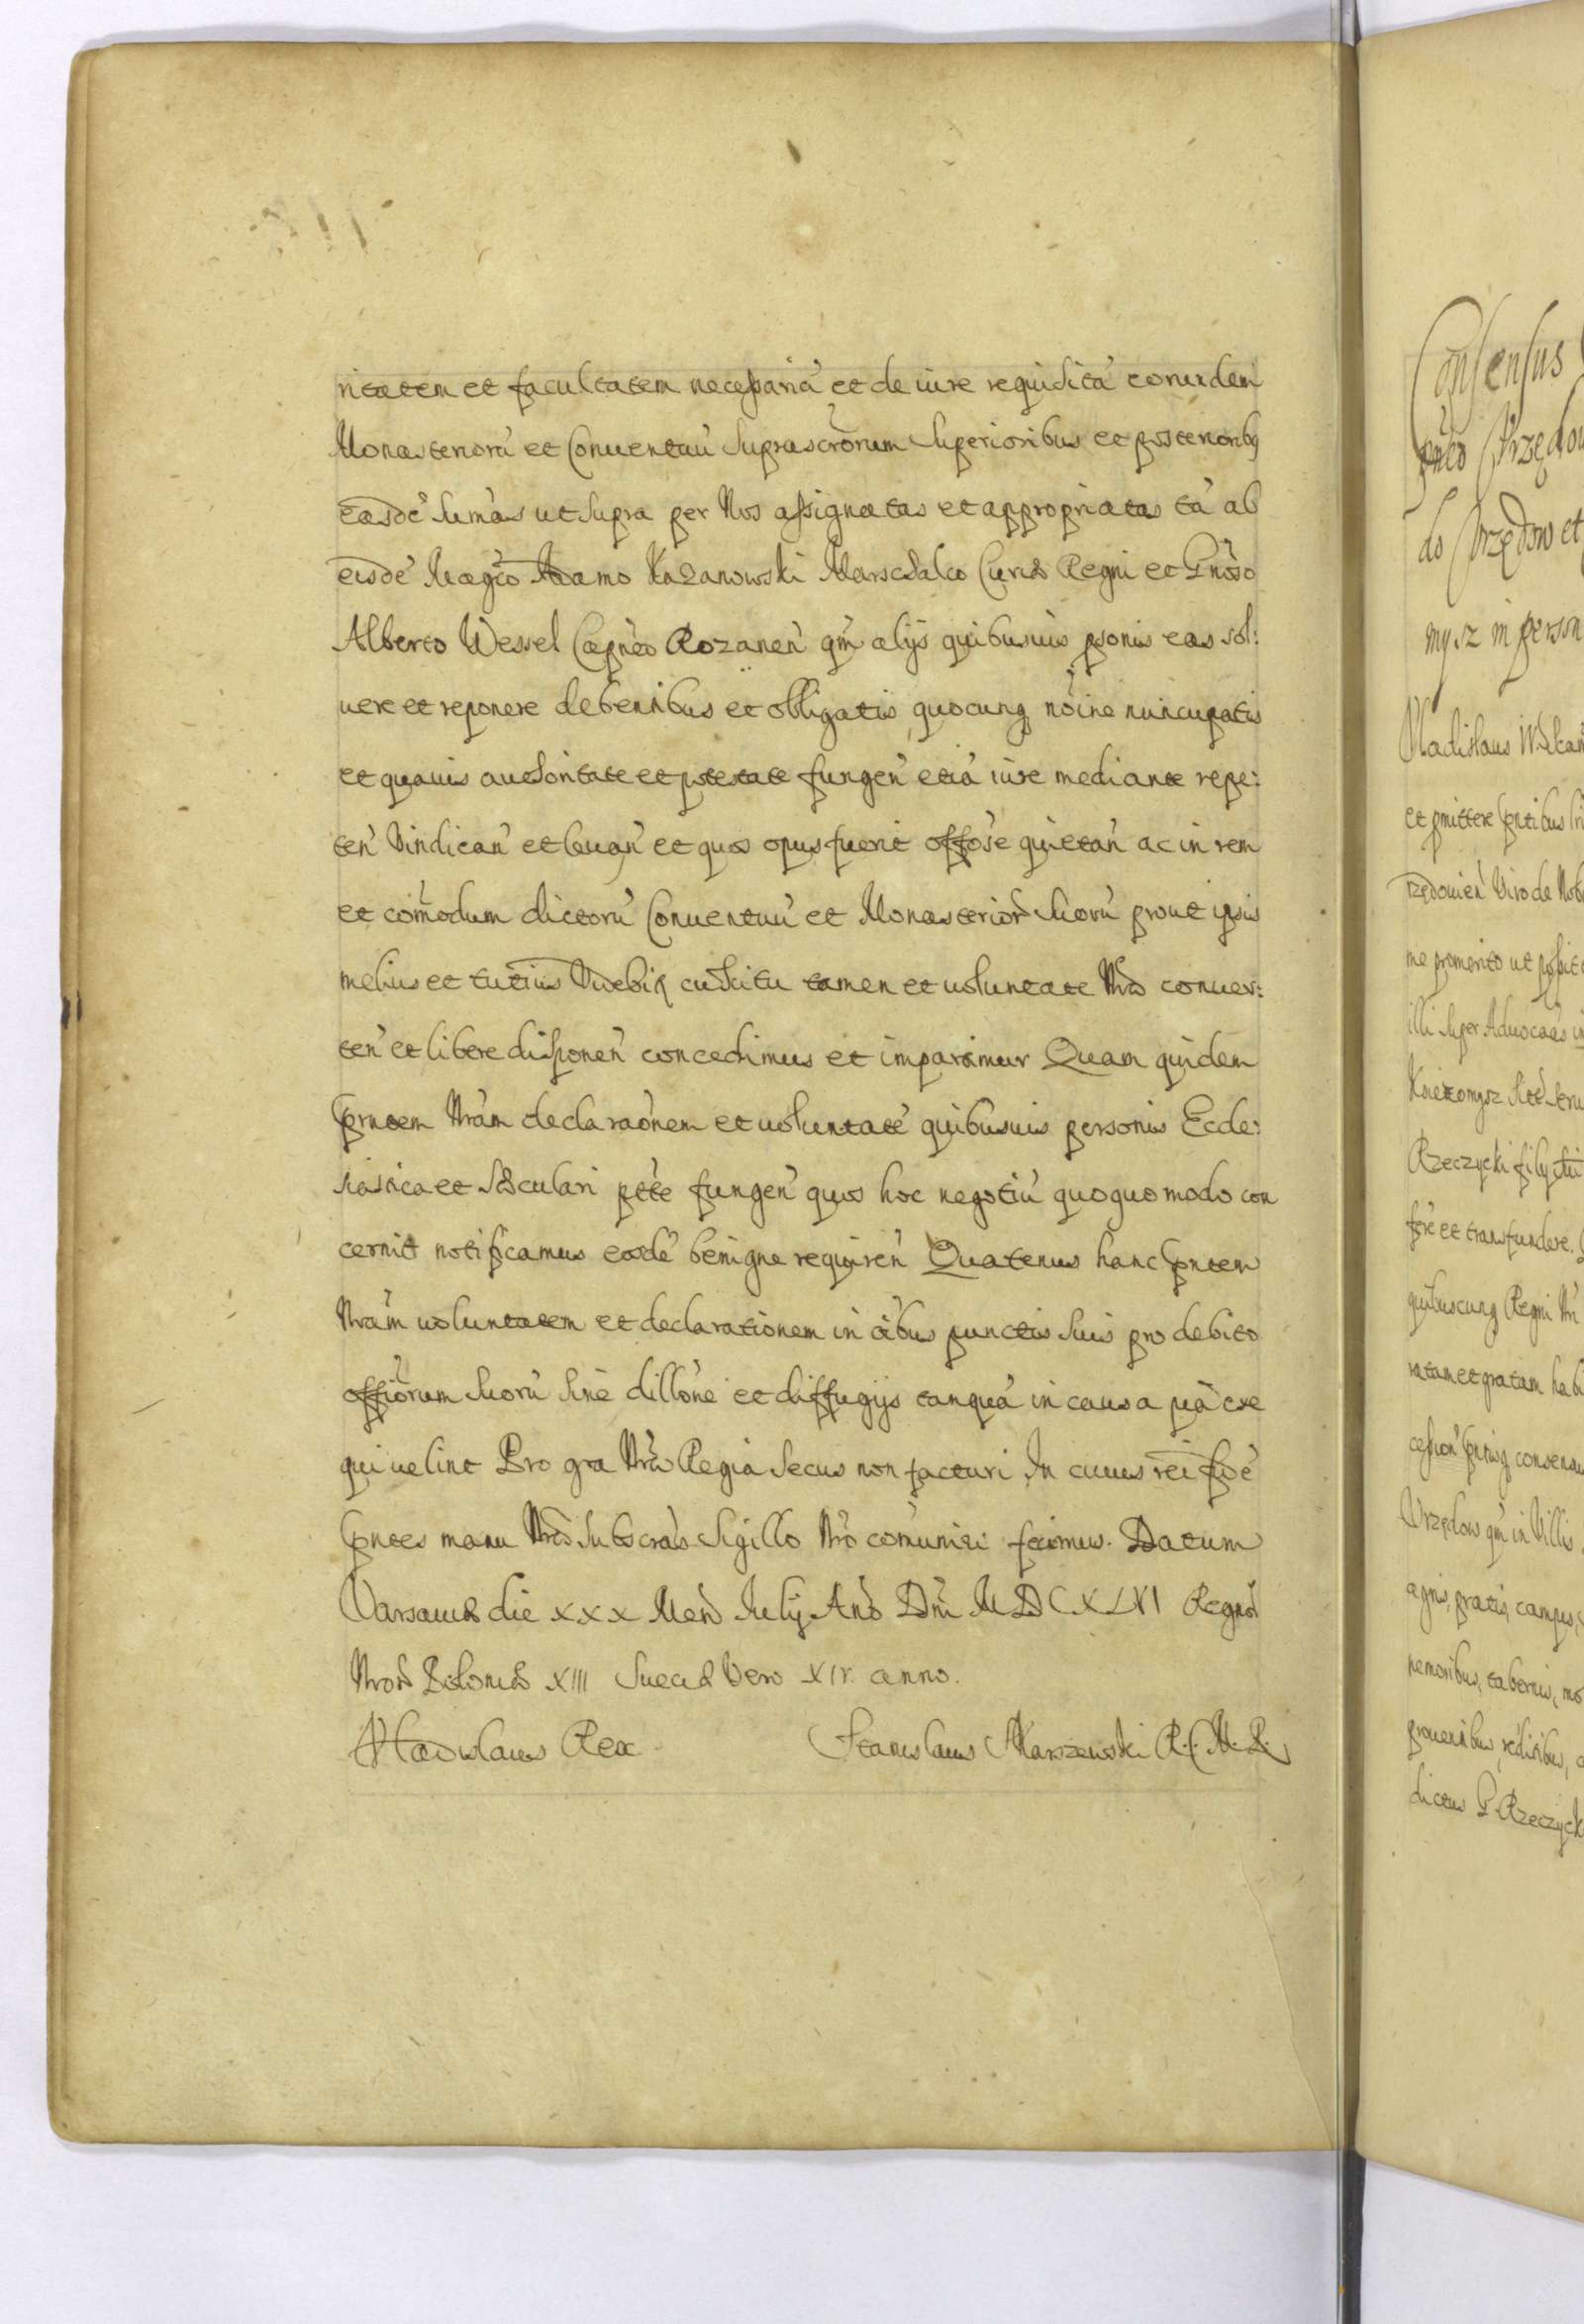 ritatem et facultatem necessariā et de iure requisitā eorundem
Monasteriorū et Conuentuū suprascrōrum superioribus et posterioribꝫ
easdē sumās ut supra per Nos assignatas et appropriatas tā ab
eisdē Magco Adamo Kazanowski Marschalco Curiæ Regni et Gnōso
Alberto Wessel Capneo Rozanen̄ qm̄ alijs quibusuis psonis eas sol:
uere et reponere debentibus et obligatis quocunqꝫ nōine nuncupatis
et quauis authoritate et ptestate fungen̄ etiā iure mediante repe:
ten̄ Vindican̄ et leuan̄ et quos opus fuerit offōse quietan̄ ac in rem
et com̄odum dictorū Conuentuū et Monasteriorū suorū prout ipsis
melius et tutius Videbiꝶ cū scitu tamen et uoluntate Nrā conuer:
ten̄ et libere disponen̄ concedimus et impartimur Quam quidem
pn̄tem Nrām declaraōnem et uoluntatē quibusuis personis Eccle:
siastica et Sæculari ptte fungen̄ quos hoc negotiū quoquo modo con
cernit notificamus eosdē benigne requiren̄ Quatenus hanc pn̄tem
Nrām uoluntatem et declarationem in oībus punctis suis pro debito
offiōrum suorū sine dillōne et diffugijs tanquā in causa piā exe
qui uelint Pro gra Nrā Regia secus non facturi In cuius rei fidē
pn̄tes manu Nrā subscrās Sigillo Nrō com̄uniri fecimus. Datum
Varsauiæ die XXX Men̄ Julij Anō Dn̄i MDCXLVI Regnōꝶ
Nrōꝶ Poloniæ XIII Sueciæ Vero XIV. anno.
Vladislaus Rex Stanislaus Skarszewski R. C. M. R.
Consensus
pneo Vrzędow
do Vrzędow et
mysz in person
Vladislaus IV Dei
et pmittere pn̄tibus
rzędouien̄ Viro de Nob
ne promerito ut possit
illi super Aduocaās
Rzeczycki filij sui
fere et transfundere.
quibuscunqꝫ Regni Nri
ratam et gratam hab
cession̄ pn̄tisqꝫ consensu
Vrzędow qm̄ in Villis
agris, pratis, campis,
nemoribus, tabernis, mo
prouentibus, reditibus,
dictus G Rzeczycki